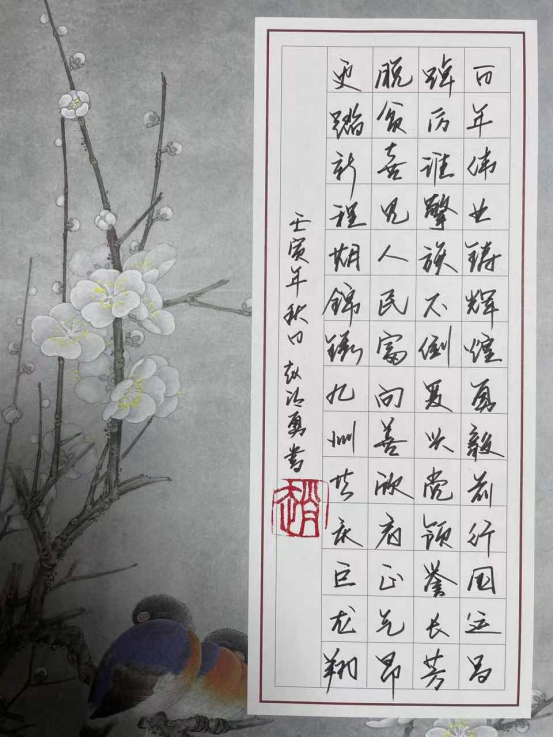 百年伟业铸辉煌勇毅前行国运昌
踔厉谁擎旗不倒复兴党领誉长芳
脱贫喜见人民富向善欣看正气昂
更踏新程期锦绣九州共庆巨龙翔
壬寅年秋日 赵勇书
趙